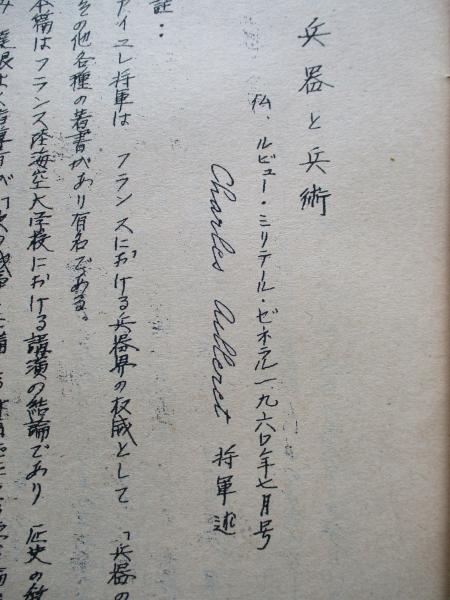 兵器と兵術
仏、ルビュー・ミリテール・ゼネラル一九六〇年七月号
Charles Ailleret 将軍述
註：
アイエレ将軍は フランスにおける兵器界の权威として 「兵器の
その他各種の著書があり有名である。
本稿はフランス陸海空大学校における講演の結論であり 歴史の